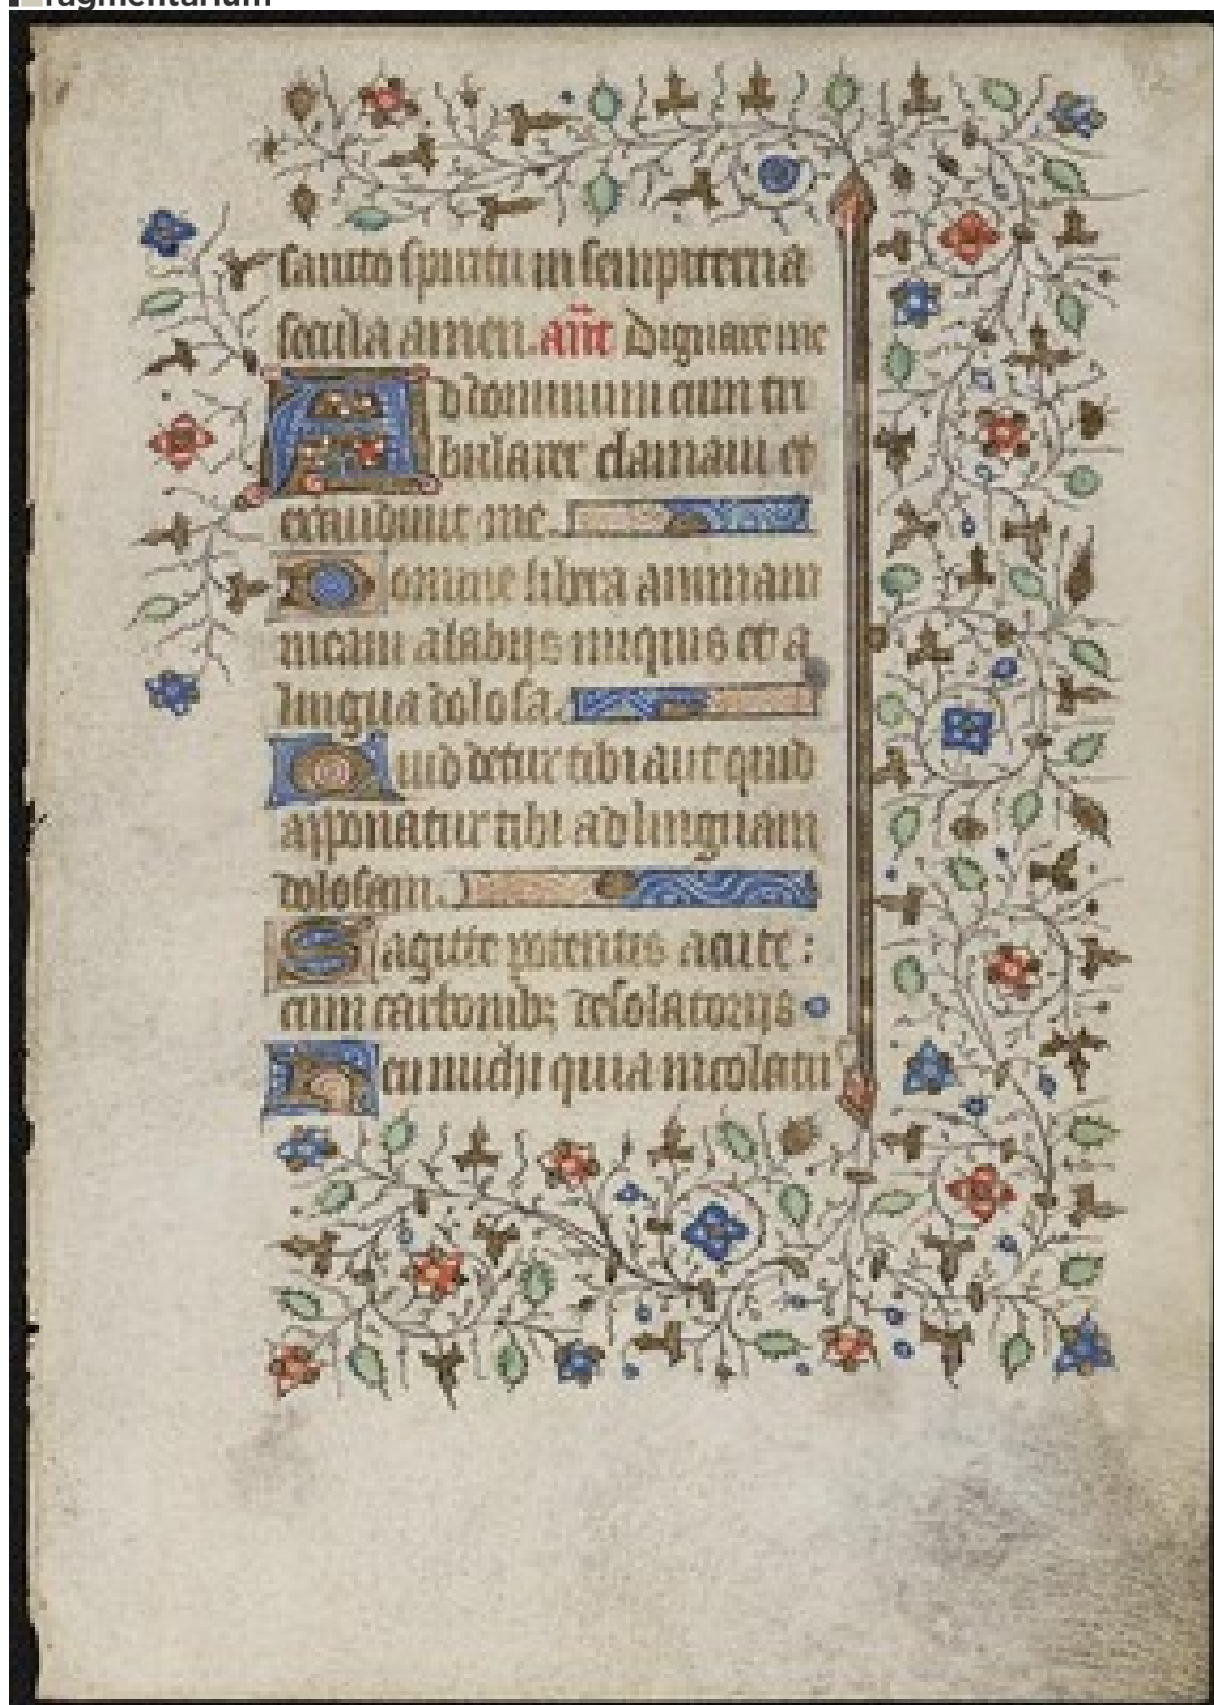 fragmentarium
sancto spiritu in sempiterna
secula amen. añt Dignare me
Ad dominum cum tri
bularer clamavi et
exaudivit me.
Domine libera animam
meam a labijs iniquis et a
lingua dolosa.
Quid detur tibi aut quid
apponatur tibi ad linguam
dolosam.
Sagitte potentis acute :
cum carbonib; desolatorijs
Heu michi quia incolatu